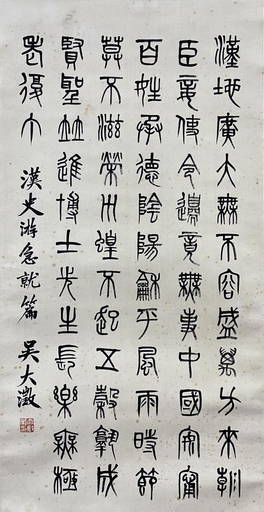 漢地廣大無不容盛萬方來朝
臣妾使令邊竟無事中國安寧
百姓承德陰陽龢平風雨時節
莫不滋榮𢦏蝗不起五穀孰成
賢聖竝進博士先生長樂無極
老復丁
漢史游急就篇 吳大澂